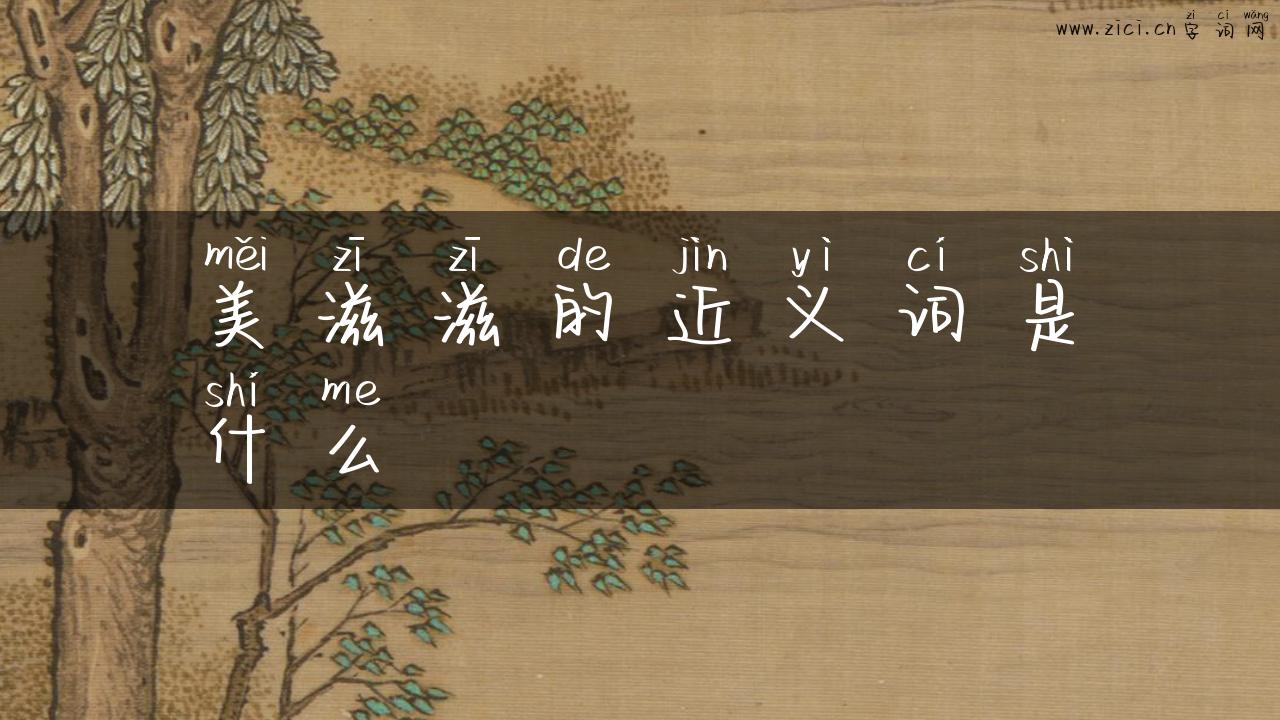 zì cí wǎng
www.zici.cn 字词网
měi zī zī de jìn yì cí shì
美滋滋的近义词是
shí me
什么